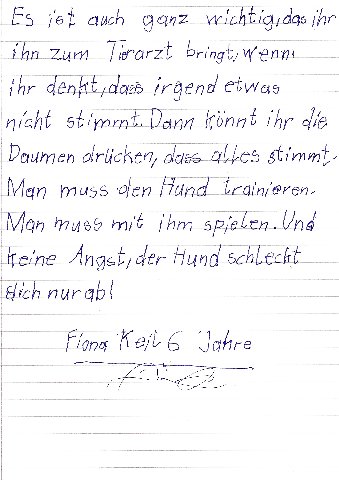 Es ist auch ganz wichtig, das ihr
ihn zum Tierarzt bringt, wenn
ihr denkt, dass irgend etwas
nicht stimmt. Dann könnt ihr die
Daumen drücken, dass alles stimmt.
Man muss den Hund trainieren.
Man muss mit ihm spielen. Und
keine Angst, der Hund schleckt
dich nur ab!
Fiona Keil 6 Jahre